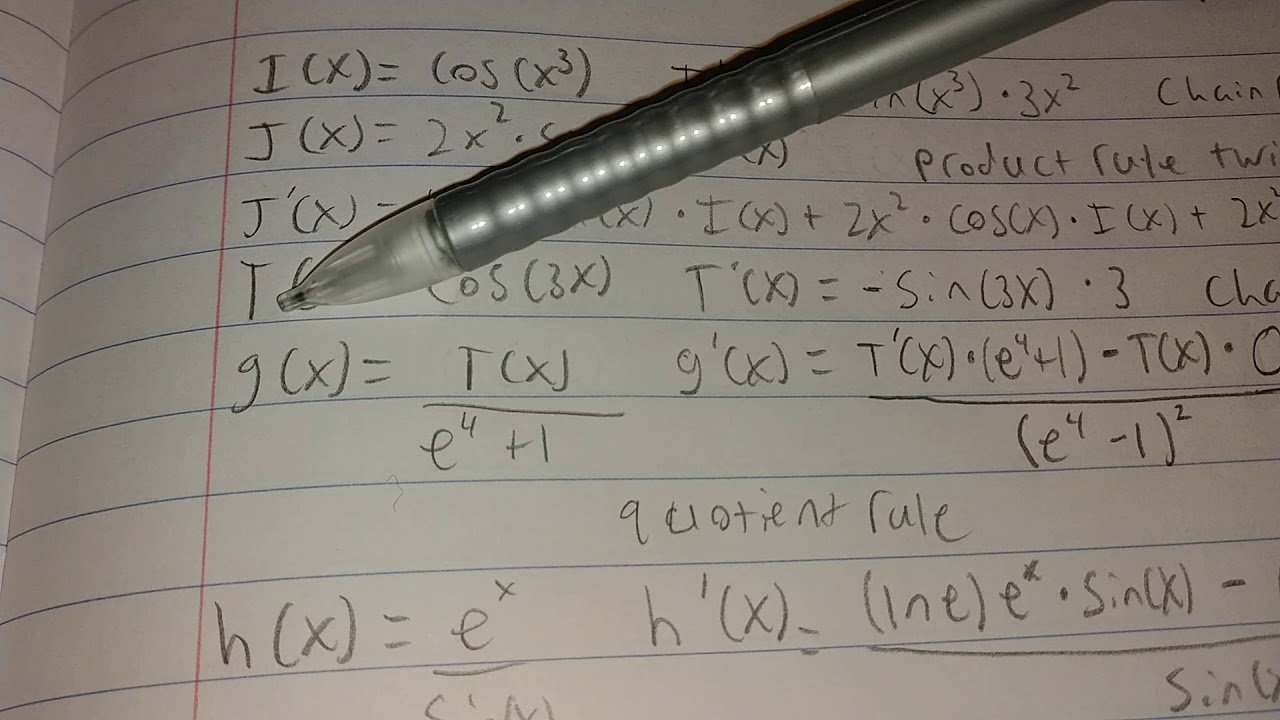 I(x) = cos(x³) (x³) · 3x² Chain
J(x) = 2x² · (x) product rule
J'(x) = (x) · I(x) + 2x² · cos(x) · I(x) + 2x²
T cos(3x) T'(x) = -sin(3x) · 3
g(x) = T(x) g'(x) = T'(x) · (e⁴+1) - T(x) · 0
e⁴ + 1 (e⁴ - 1)²
quotient rule
h(x) = eˣ h'(x) = (ln e) eˣ · sin(x) -
sin(x) sin(x